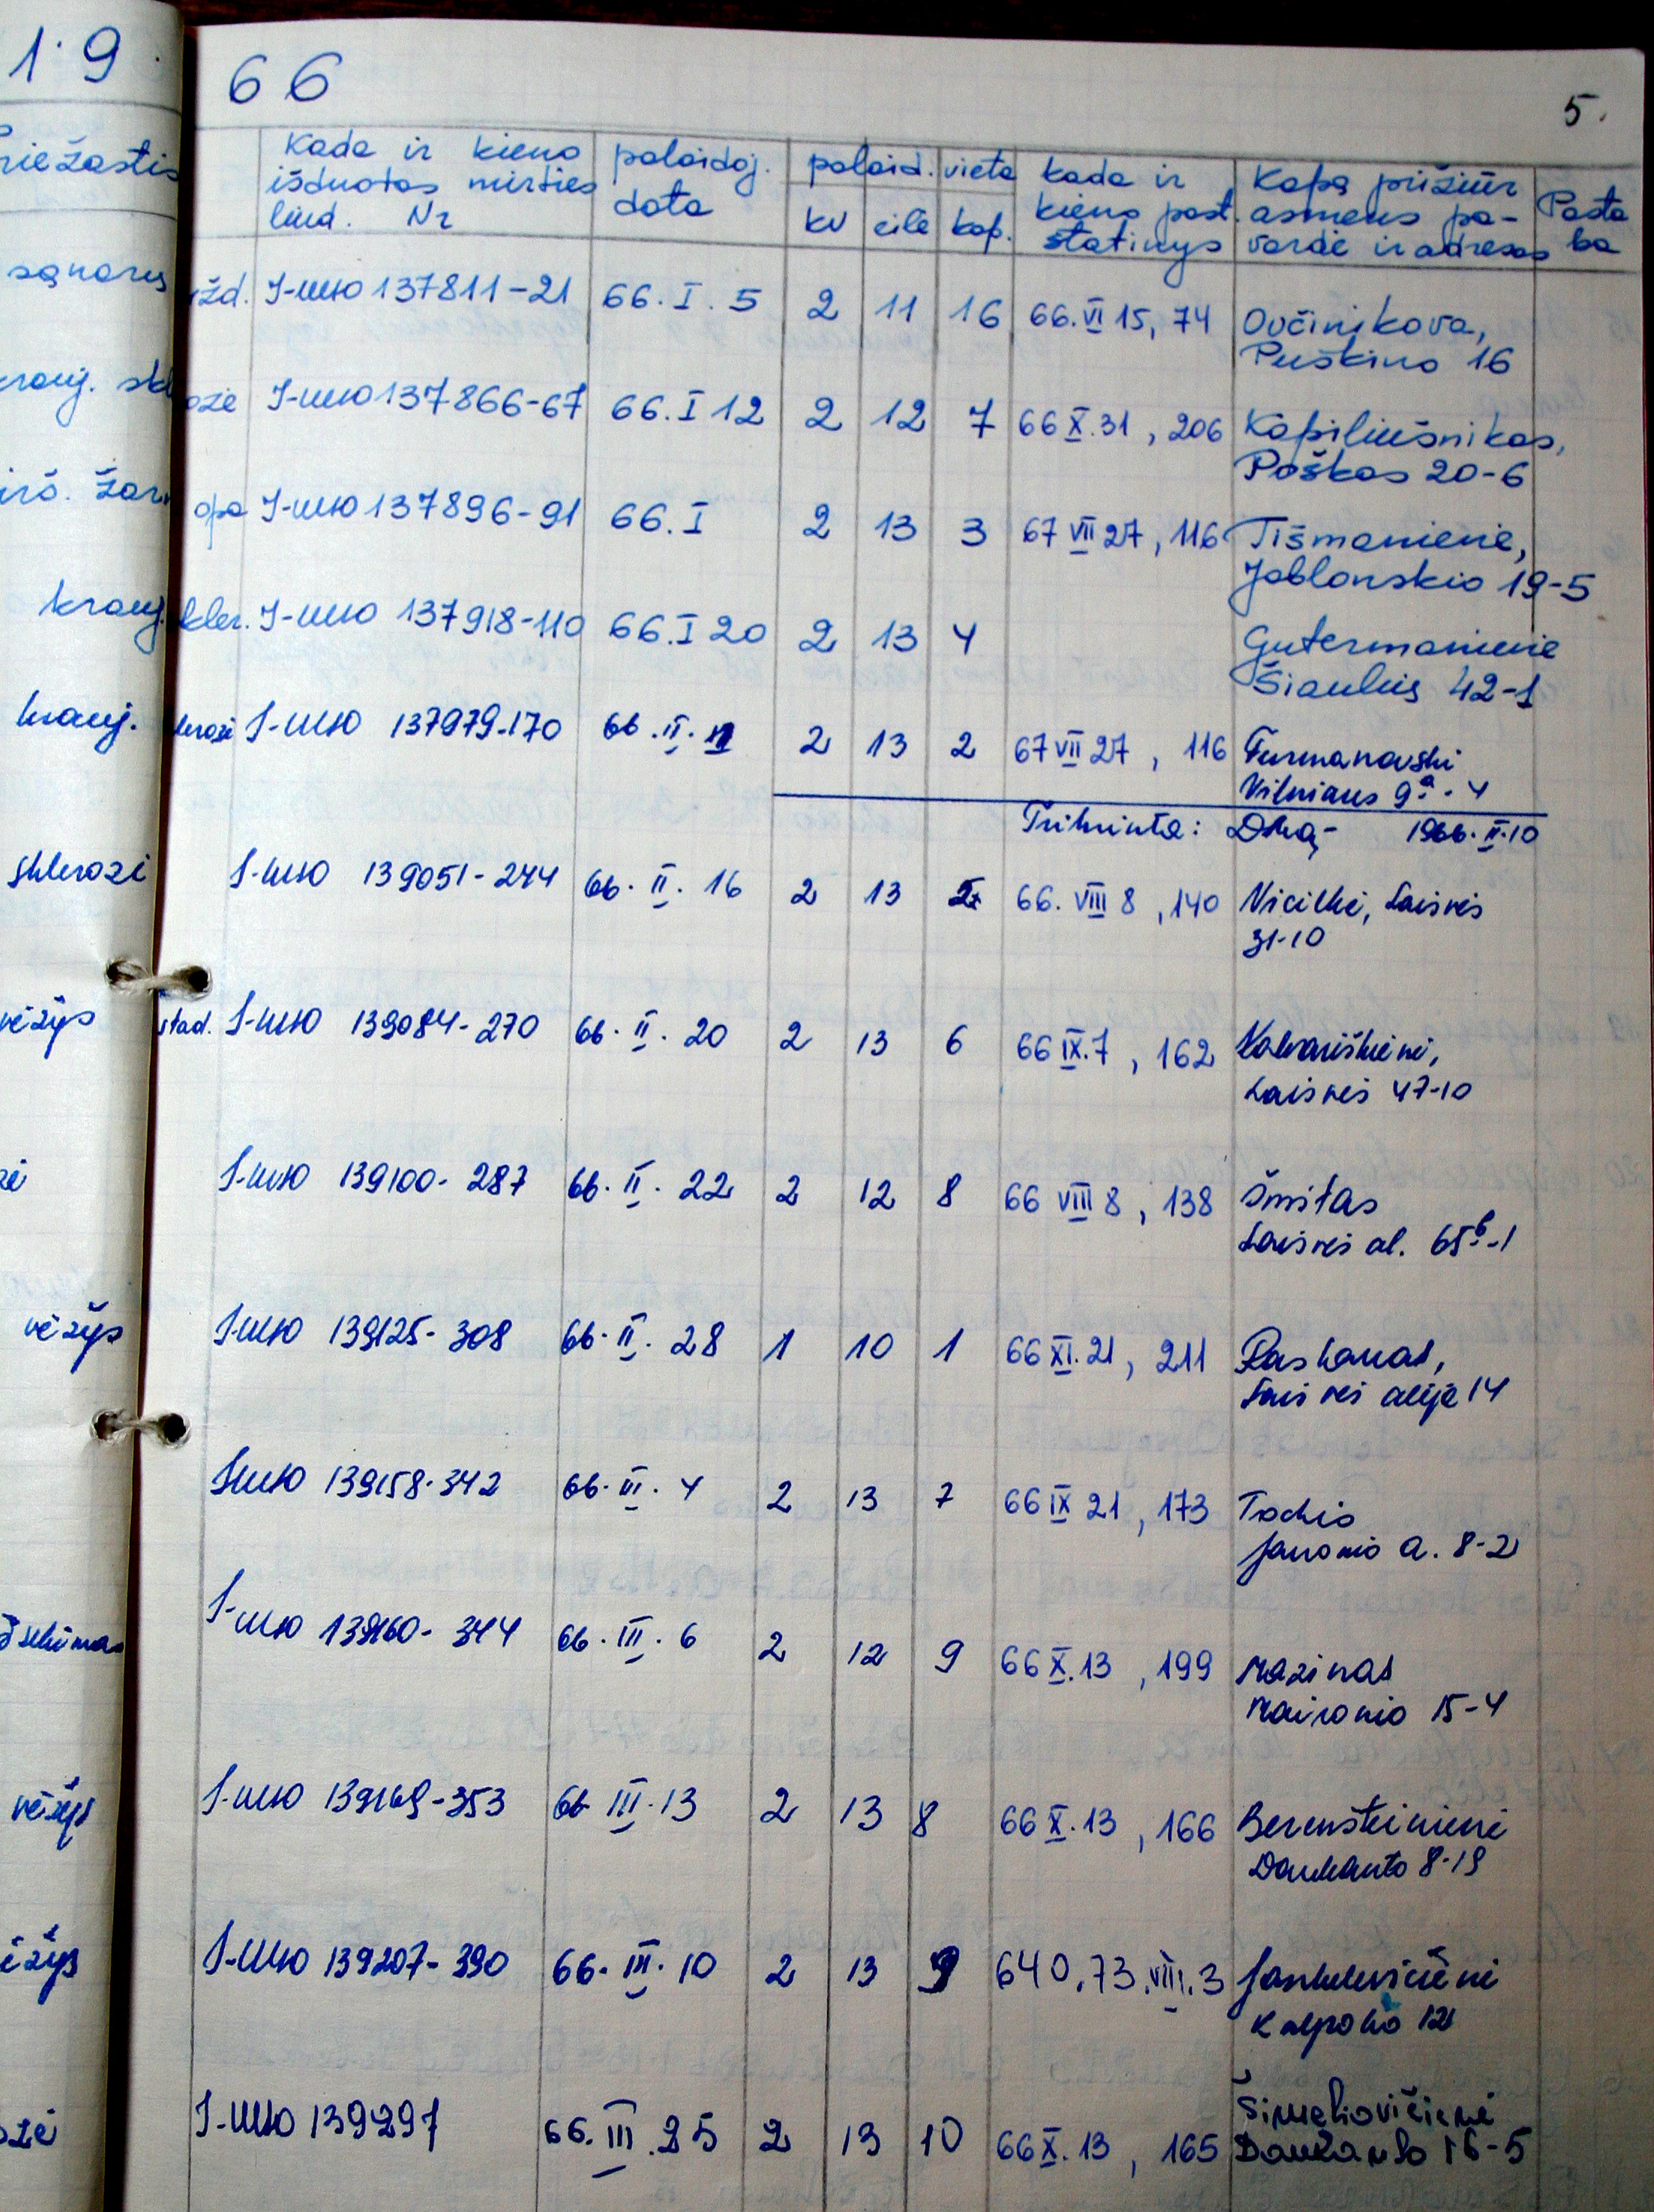 19 66
5.
riežastis
Kada ir kieno
išduotas mirties
liud. Nr
palaidoj.
data
palaid. vieta
kv eilė kap.
kada ir
kieno past.
statinys
Kapą prižiūr
asmens pa-
vardė ir adresas
Pasta
ba
sąnarių
žd. I-MЮ 137811-21 66.I.5 2 11 16 66.VI 15, 74 Ovčinikova,
Puškino 16
krauj. skl ozė I-MЮ 137866-67 66.I 12 2 12 7 66 X.31, 206 Kapiliušnikas,
Poškos 20-6
irš. žar opa I-MЮ 137896-91 66.I 2 13 3 67 VII 27, 116 Tišmanienė,
Jablonskio 19-5
krauj. kler. I-MЮ 137918-110 66.I 20 2 13 4 Gutermanienė
Šiaulius 42-1
krauj. lerozė I-MЮ 137979-170 66.II. 2 13 2 67 VII 27, 116 Furmanovski
Vilniaus 9a-4
Tikrinta: 1966.II.10
sklerozė I-MЮ 139051-244 66.II.16 2 13 66.VIII 8, 140 Laisvės
31-10
vėžys stad. I-MЮ 139084-270 66.II.20 2 13 6 66 IX.7, 162 Kalvariškienė,
Laisvės 47-10
zė I-MЮ 139100-287 66.II.22 2 12 8 66 VIII 8, 138 Šmitas
Laisvės al. 65b-1
vėžys I-MЮ 139125-308 66.II.28 1 10 1 66 XI.21, 211 Raskanas,
Laisvės alėja 14
I-MЮ 139158-342 66.III.4 2 13 7 66 IX 21, 173 Tochis
Janonio a. 8-2
I-MЮ 139160-344 66.III.6 2 12 9 66 X.13, 199 Mazinas
Maironio 15-4
vėžys I-MЮ 139169-353 66 III.13 2 13 8 66 X.13, 166 Berenšteinienė
Daukanto 8-19
ėžys I-MЮ 139207-390 66.III.10 2 13 9 640.73.VIII.3 Jankelevičienė
Kapsuko 12
ozė I-MЮ 139297 66.III.25 2 13 10 66 X.13, 165 Šimeliovičienė
Daukanto 16-5